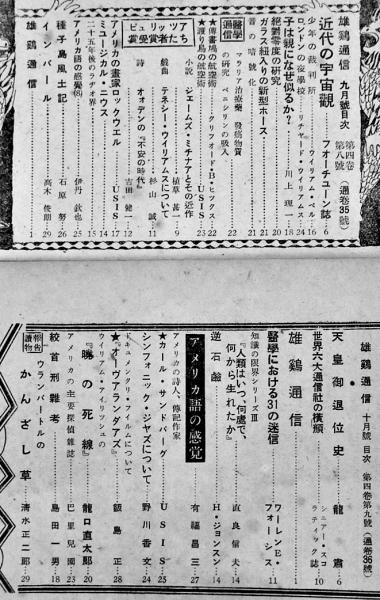 雄鷄通信 九月號目次 第四卷第八號 (通卷35號)
近代の宇宙觀 フォーチューン誌 6
少年の裁判所 ウイリアム・ベル 16
ロンドンの夜學校 リチャード・ウイリアムス 24
子は親になぜ似るか? 川上理一 18
絕對零度の研究 20
ガラス紐入りの新型ホース 21
音の暗號化 21
醫學通信
マラリア治療藥 發癌物質の研究 ペニシリンの吸入 22
★傳書鳩の航空術 クリフォード・B・ヒックス
★渡り鳥の航空術 USIS 23
ピュリッツア賞受賞者たち
小説 ジェームズ・ミチナアとその近作 植草甚一 9
戯曲 テネシー・ウイリアムスについて 杉山誠 11
詩 オォデンの『不安の時代』 吉田健一 12
アメリカの畫家ロックウエル USIS 17
ミュージカル・ニウス 14
二十五年後のラヂオ界 15
アメリカ語の感覺(8) 伊丹欽也 25
種子島風土記 石原努 26
インパール 高木俊朗 29
雄鷄通信 1
雄鷄通信 十月號 目次 第四卷第九號 (通卷36號)
天皇御退位史 龍肅 6
世界六大通信社の橫顏 シニアー・スコラティック誌 10
雄鷄通信 1
醫學における31の迷信 ワーレンE・フォーシス 11
知識の限界シリーズⅢ
『人類はいつ、何處で、何から生れたか』 直良信夫 14
逆石鹼 H・ジョンスン 14
アメリカ語の感覺 有福昌三 27
アメリカの詩人、傳記作家
★カール・サンドバーグ USIS 25
シンフォニック・ジャズについて 野川香文 24
ドキュメンタリ・フィルムについて
★『オーヴァランダアズ』 飯島正 28
ウイリアム・アイリッシュの
『曉の死線』 龍口直太郎 20
アメリカの主要探偵雜誌 巴里兒 23
絞首刑雜考 島田一男 18
報告讀物
ウランバートルの
かんざし草 清水正二郎 29